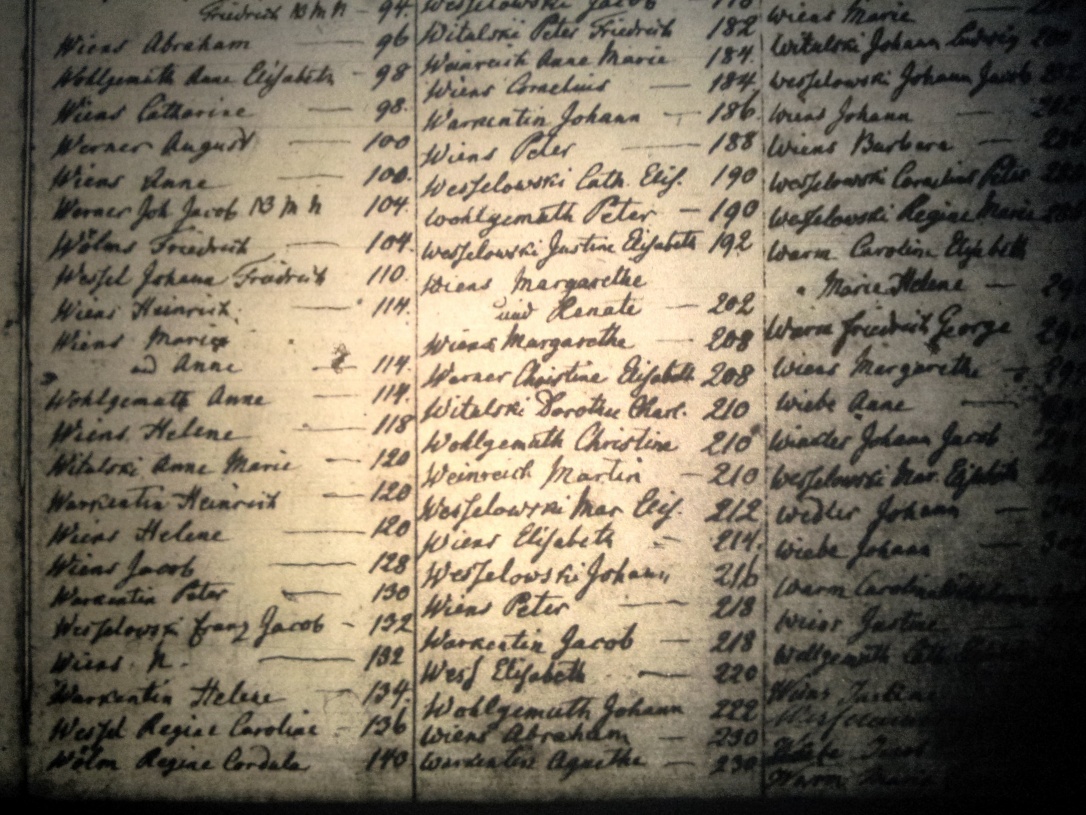 Friedrich N M N - 94.
Wiens Abraham — 96
Wohlgemuth Anne Elisabeth - 98
Wiens Catharine — 98.
Werner August — 100
Wiens Anne — 100.
Werner Joh Jacob N M N 104.
Wölms Friedrich — 104.
Wessel Johann Friedrich 110.
Wiens Heinrich. — 114.
Wiens Marie
und Anne — 114.
Wohlgemuth Anne — 114.
Wiens Helene — 118
Witulski Anne Marie — 120
Warkentin Heinrich — 120
Wiens Helene — 120
Wiens Jacob — 128
Warkentin Peter — 130
Wesselowski Franz Jacob - 132
Wiens N. — 132
Warkentin Helene — 134.
Wessel Regine Caroline - 136
Wölm Regine Cordula 140
Wesselowski Jacob
Witulski Peter Friedrich 182
Weinreich Anne Marie 184.
Wiens Cornelius — 184
Warkentin Johann — 186
Wiens Peter — 188
Wesselowski Cath. Elis. 190
Wohlgemuth Peter — 190
Wesselowski Justine Elisabeth 192
Wiens Margarethe
und Renate — 202
Wiens Margarethe — 208
Werner Christine Elisabeth 208
Witulski Dorothe Charl. 210
Wohlgemuth Christine 210
Weinreich Martin — 210
Wesselowski Mar Elis. 212
Wiens Elisabeth - 214.
Wesselowski Johann 216
Wiens Peter — 218
Warkentin Jacob — 218
Wess Elisabeth — 220
Wohlgemuth Johann 222
Wiens Abraham — 230
Warkentin Aganethe — 230
Wiens Marie —
Witulski Johann Ludwig
Wesselowski Johann Jacob
Wiens Johann —
Wiens Barbara —
Wesselowski Cornelius Peter
Wesselowski Regine Marie
Warm Caroline Elisabeth
Marie Helene —
Warm Friedrich George
Wiens Margarethe -
Wiebe Anne —
Johann Jacob
Wesselowski Mar. Elisabeth
Wedler Johann —
Wiebe Johann
Warm Caroline
Wiens Justine
Wohlgemuth Cath.
Wiens Justine
Warm